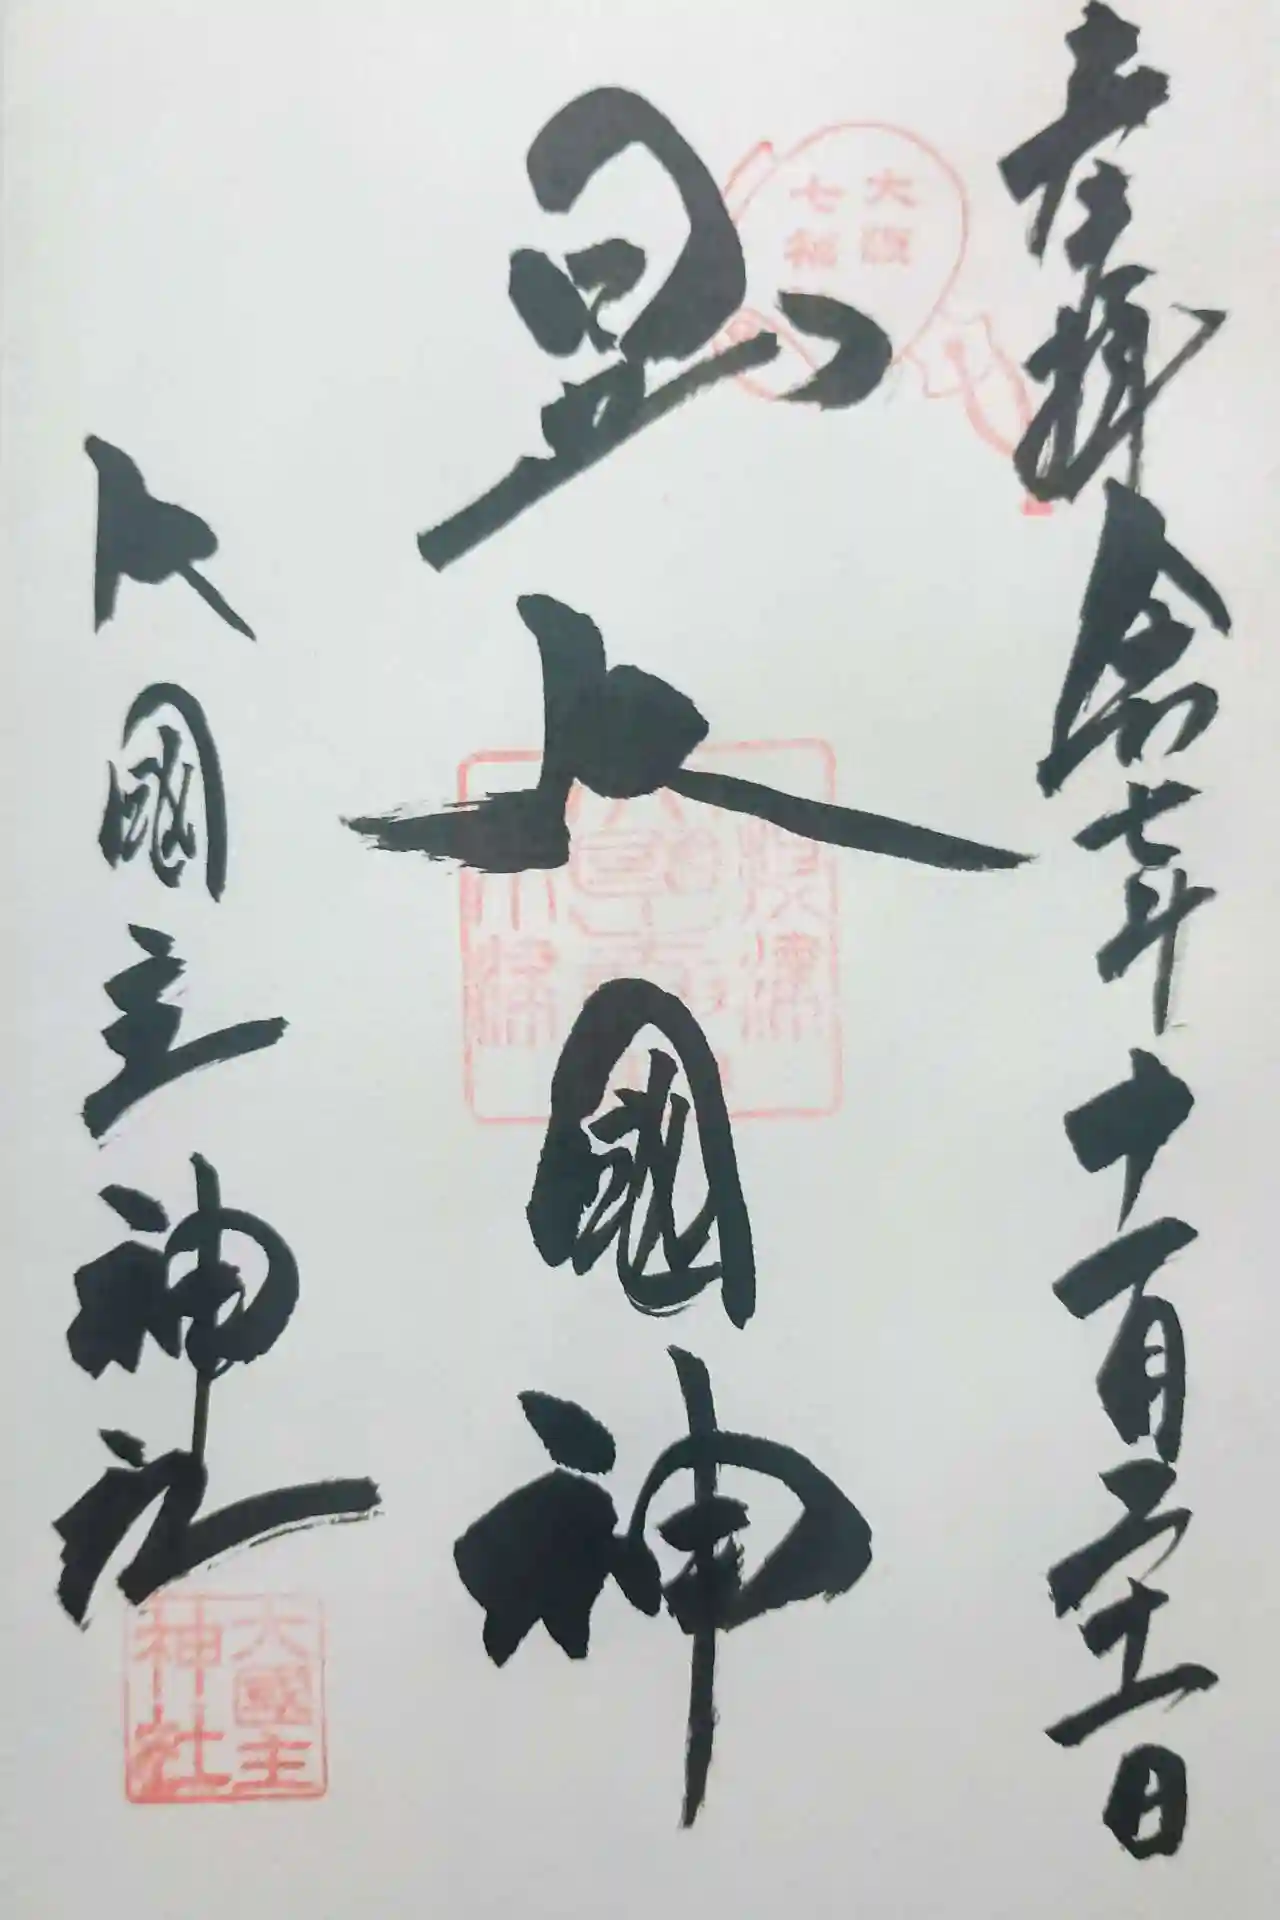 奉拝 令和七年十一月二十一日
大阪
七福
日出大國神
大國主神社
大國主
神社